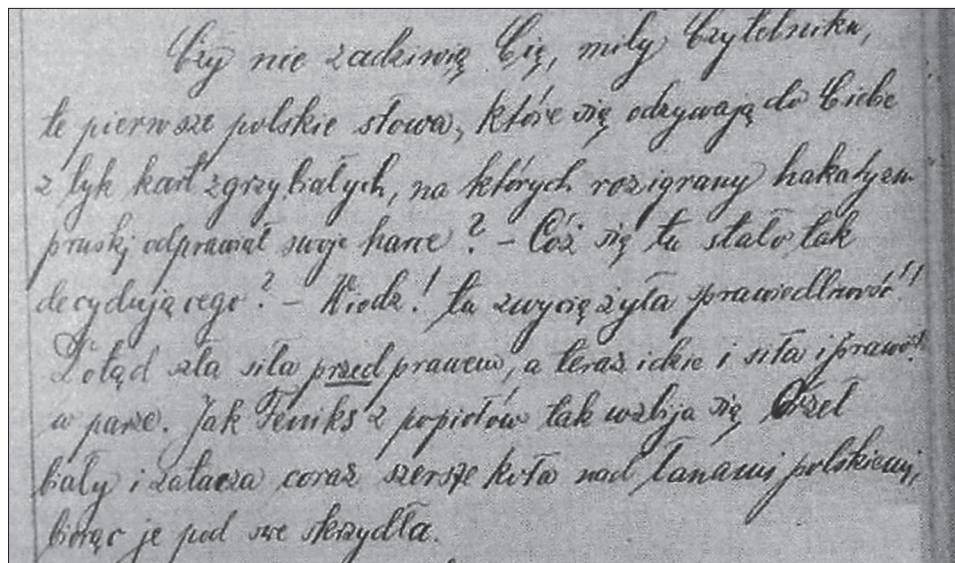 Czy nie zadziwią Cię, miły Czytelniku,
te pierwsze polskie słowa, które się odzywają do Ciebie
z tyk kart zgrzybiałych, na których rozigrany hakatyzm
pruski odprawiał swoje harce? - Cóż się tu stało tak
decydującego? - Wiedz! tu zwyciężyła sprawiedliwość!!
Dotąd szła siła przed prawem, a teraz idzie i siła i prawo!
w parze. Jak Feniks z popiołów tak wzbija się Orzeł
biały i zatacza coraz szersze koła nad łanami polskiemi,
biorąc je pod swe skrzydła.